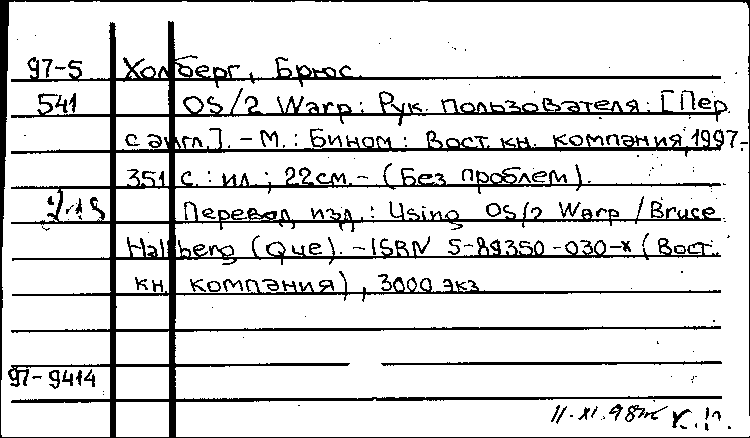 97-5 Холберг, Брюс.
541 OS/2 Warp: Рук. пользователя: [Пер
с англ.]. - М.: Бином: Вост. кн. компания, 1997.-
351 с.: ил.; 22см. - (Без проблем).
Перевод изд.: Using OS/2 Warp / Bruce
Hallberg (Que). - ISBN 5-89350-030-x (Вост.
кн. компания), 3000 экз.
97-9414
11.XI.98